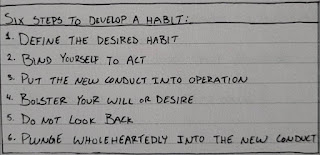 SIX STEPS TO DEVELOP A HABIT:
1. DEFINE THE DESIRED HABIT
2. BIND YOURSELF TO ACT
3. PUT THE NEW CONDUCT INTO OPERATION
4. BOLSTER YOUR WILL OR DESIRE
5. DO NOT LOOK BACK
6. PLUNGE WHOLEHEARTEDLY INTO THE NEW CONDUCT